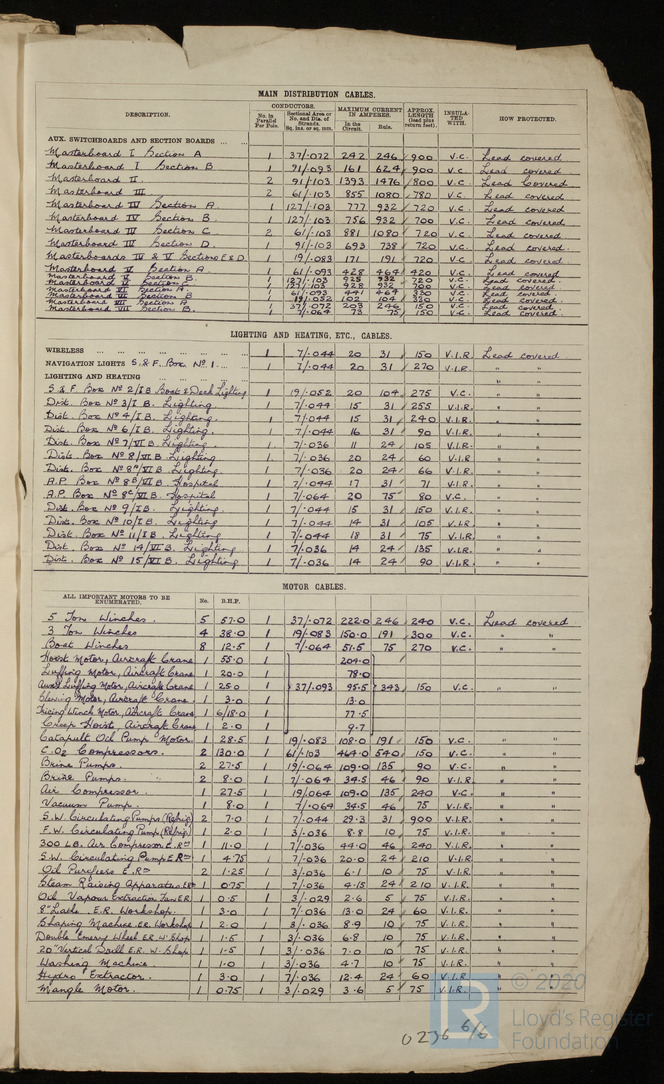 MAIN DISTRIBUTION CABLES.
DESCRIPTION. CONDUCTORS. MAXIMUM CURRENT IN AMPERES. APPROX. LENGTH (lead plus return feet). INSULATED WITH. HOW PROTECTED.
No. in Parallel Per Pole. Sectional Area or No. and Dia. of Strands. Sq. ins. or sq. mm. In the Circuit. Rule.
AUX. SWITCHBOARDS AND SECTION BOARDS
Masterboard I Section A 1 37/.072 242 246 900 V.C. Lead covered
Masterboard I Section B 1 91/.093 161 624 900 V.C. Lead covered
Masterboard II 2 91/.103 1393 1476 800 V.C. Lead Covered
Masterboard III 2 61/.103 855 1080 780 V.C. Lead covered
Masterboard IV Section A 1 127/.103 777 932 720 V.C. Lead covered
Masterboard IV Section B 1 127/.103 756 932 700 V.C. Lead covered
Masterboard IV Section C 2 61/.103 881 1080 720 V.C. Lead covered
Masterboard IV Section D. 1 91/.103 693 738 720 V.C. Lead covered
Masterboards IV & V Sections E & D 1 19/.083 171 191 720 V.C. Lead covered
Masterboard V Section A 1 61/.093 428 464 420 V.C. Lead covered
Masterboard V Section B 1 127/.103 925 932 720 V.C. Lead covered
Masterboard Section C 1 127/.103 928 932 700 V.C. Lead covered
Masterboard VI Section A. 1 61/.093 441 464 330 V.C. Lead covered
Masterboard VI Section B 1 19/.052 102 104 320 V.C. Lead covered
Masterboard VII Section 1 37/.072 203 246 150 V.C. Lead covered
Masterboard VII Section B 1 7/.064 73 75 150 V.C. Lead covered
LIGHTING AND HEATING, ETC., CABLES.
WIRELESS 1 7/.044 20 31 150 V.I.R. Lead covered
NAVIGATION LIGHTS S.&F. Box No 1 1 7/.044 20 31 270 V.I.R. " "
LIGHTING AND HEATING " "
S & F. Box No 2/I B Boat & Deck Lighting 1 19/.052 20 104 275 V.C. " "
Dist. Box No 3/I B. Lighting. 1 7/.044 15 31 255 V.I.R. " "
Dist. Box No 4/I B. Lighting. 1 7/.044 15 31 240 V.I.R. " "
Dist. Box No 6/I B. Lighting. 1 7/.044 16 31 90 V.I.R. " "
Dist. Box No 7/VI B. Lighting. 1 7/.036 11 24 105 V.I.R. " "
Dist. Box No 8/VI B Lighting 1 7/.036 20 24 60 V.I.R. " "
Dist. Box No 8A/VI B. Lighting 1 7/.036 20 24 66 V.I.R. " "
A.P. Box No 8B/VI B. Hospital 1 7/.044 17 31 71 V.I.R. " "
A.P. Box No 8C/VI B. Hospital 1 7/.064 20 75 80 V.C. " "
Dist. Box No 9/I B. Lighting 1 7/.044 15 31 150 V.I.R. " "
Dist. Box No 10/I B. Lighting 1 7/.044 14 31 105 V.I.R. " "
Dist. Box No 11/I B. Lighting 1 7/.044 18 31 75 V.I.R. " "
Dist. Box No 14/VI B. Lighting 1 7/.036 14 24 135 V.I.R. " "
Dist. Box No 15/VI B. Lighting 1 7/.036 14 24 90 V.I.R. " "
MOTOR CABLES.
ALL IMPORTANT MOTORS TO BE ENUMERATED. No. B.H.P.
5 Ton Winches. 5 57.0 1 37/.072 222.0 246 240 V.C. Lead covered
3 Ton Winches 4 38.0 1 19/.083 150.0 191 300 V.C. " "
Boat Winches 8 12.5 1 7/.064 51.5 75 270 V.C. " "
Hoist Motor, Aircraft Crane 1 55.0 1 204.0
Luffing Motor, Aircraft Crane 1 20.0 1 78.0
Luffing Motor, Aircraft Crane 1 25.0 1 37/.093 95.5 343 150 V.C. " "
Slewing Motor, Aircraft Crane 1 3.0 1 13.0
Winch Motor, Aircraft Crane 1 6/18.0 1 77.5
Creep Hoist, Aircraft Crane 1 2.0 1 9.7
Catapult Oil Pump Motor. 1 28.5 1 19/.083 108.0 191 150 V.C. " "
C.O2 Compressors. 2 130.0 1 61/.103 464.0 540 150 V.C. " "
Brine Pumps. 2 27.5 1 19/.064 109.0 135 90 V.C. " "
Brine Pumps. 2 8.0 1 7/.064 34.5 46 90 V.I.R. " "
Air Compressor. 1 27.5 1 19/.064 109.0 135 240 V.C. " "
Vacuum Pump. 1 8.0 1 7/.064 34.5 46 75 V.I.R. " "
S.W. Circulating Pumps (Refrig) 2 7.0 1 7/.044 29.3 31 900 V.I.R. " "
F.W. Circulating Pump (Refrig) 1 2.0 1 3/.036 8.8 10 75 V.I.R. " "
300 LB. Air Compressor E.Rm 1 11.0 1 7/.036 44.0 46 240 V.I.R. " "
S.W. Circulating Pump E.Rm 1 4.75 1 7/.036 20.0 24 210 V.I.R. " "
Oil Purifiers E.Rm 2 1.25 1 3/.036 6.1 10 75 V.I.R. " "
Steam Raising Apparatus E.Rm 1 0.75 1 7/.036 4.15 24 210 V.I.R. " "
Oil Vapour Extraction Fan E.R. 1 0.5 1 3/.029 2.6 5 75 V.I.R. " "
8" Lathe. E.R. Workshop. 1 3.0 1 7/.036 13.0 24 60 V.I.R. " "
Shaping Machine E.R. Workshop 1 2.0 1 3/.036 8.9 10 75 V.I.R. " "
Double Emery Wheel E.R. W'Shop 1 1.5 1 3/.036 6.8 10 75 V.I.R. " "
20" Vertical Drill E.R. W. Shop 1 1.5 1 3/.036 7.0 10 75 V.I.R. " "
Washing Machine 1 1.0 1 3/.036 4.7 10 75 V.I.R. " "
Hydro Extractor. 1 3.0 1 7/.036 12.4 24 60 V.I.R. " "
Mangle Motor. 1 0.75 1 3/.029 3.6 5 75 V.I.R. " "
0236 6/6
© 2020
LR
Lloyd's Register
Foundation